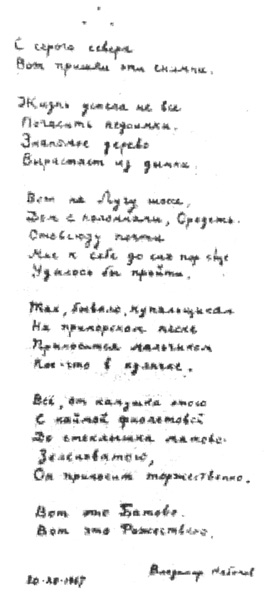 С серого севера
Вот пришли эти снимки.
Жизнь успела не все
Погасить недоимки.
Знакомое дерево
Вырастает из дымки.
Вот на Лугу шоссе,
Дом с колоннами, Оредежь.
Отовсюду почти
Мне к себе до сих пор ещё
Удалось бы пройти.
Так, бывало, купальщикам
На приморском песке
Приносится мальчиком
Кое-что в кулачке.
Всё, от камушка этого
С каймой фиолетовой
До стеклышка матово-
Зеленоватого,
Он приносит торжественно.
Вот это Батово.
Вот это Рожествено.
Владимир Набоков
20·XII·1967